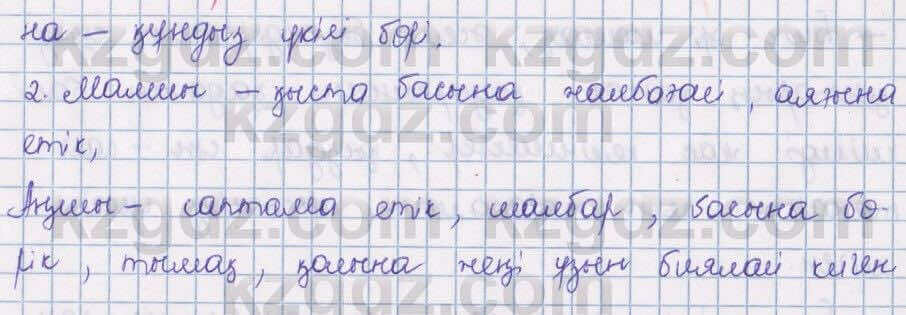 на – құндыз үкілі бөрі.
2. Малшы – қыста басына жалбағай, аяғына
етік,
Аңшы – саптама етік, шалбар, басына бө-
рік, тымақ, қолына жеңі ұзын биялай киген